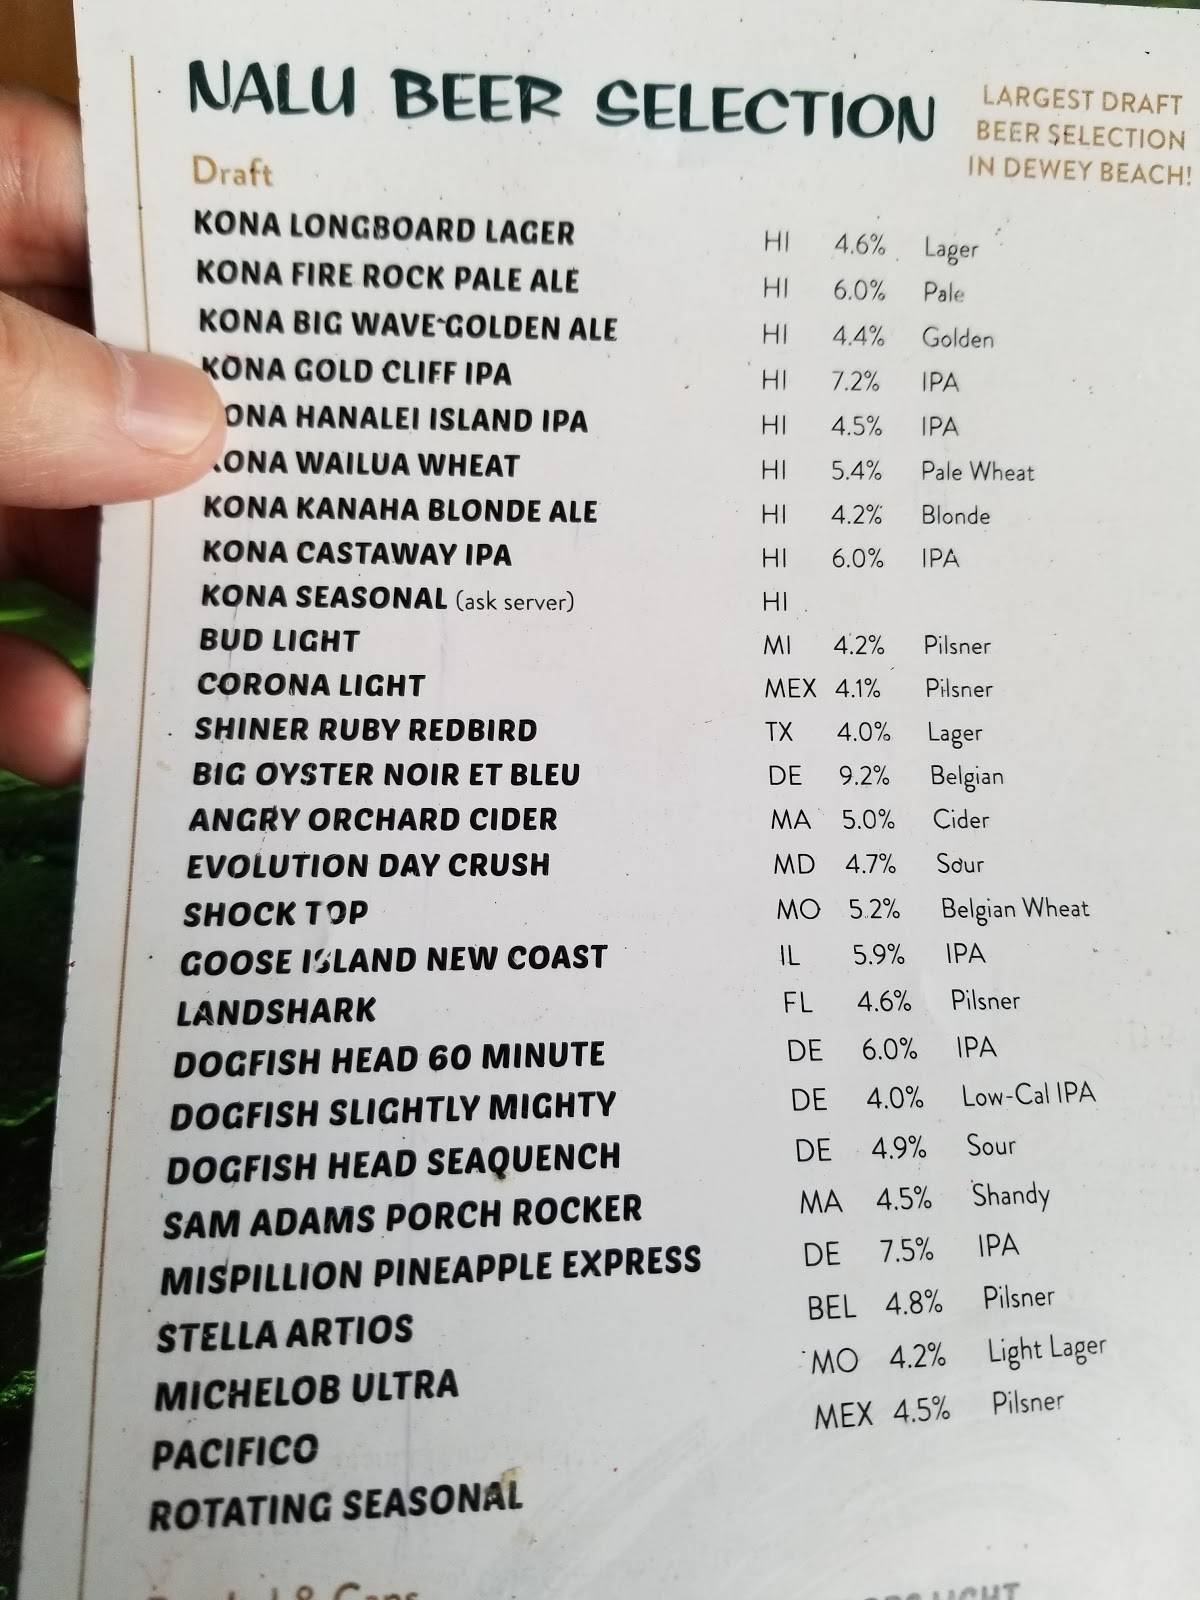 NALU BEER SELECTION
LARGEST DRAFT
BEER SELECTION
IN DEWEY BEACH!
Draft
KONA LONGBOARD LAGER HI 4.6% Lager
KONA FIRE ROCK PALE ALE HI 6.0% Pale
KONA BIG WAVE GOLDEN ALE HI 4.4% Golden
KONA GOLD CLIFF IPA HI 7.2% IPA
KONA HANALEI ISLAND IPA HI 4.5% IPA
KONA WAILUA WHEAT HI 5.4% Pale Wheat
KONA KANAHA BLONDE ALE HI 4.2% Blonde
KONA CASTAWAY IPA HI 6.0% IPA
KONA SEASONAL (ask server) HI
BUD LIGHT MI 4.2% Pilsner
CORONA LIGHT MEX 4.1% Pilsner
SHINER RUBY REDBIRD TX 4.0% Lager
BIG OYSTER NOIR ET BLEU DE 9.2% Belgian
ANGRY ORCHARD CIDER MA 5.0% Cider
EVOLUTION DAY CRUSH MD 4.7% Sour
SHOCK TOP MO 5.2% Belgian Wheat
GOOSE ISLAND NEW COAST IL 5.9% IPA
LANDSHARK FL 4.6% Pilsner
DOGFISH HEAD 60 MINUTE DE 6.0% IPA
DOGFISH SLIGHTLY MIGHTY DE 4.0% Low-Cal IPA
DOGFISH HEAD SEAQUENCH DE 4.9% Sour
SAM ADAMS PORCH ROCKER MA 4.5% Shandy
MISPILLION PINEAPPLE EXPRESS DE 7.5% IPA
STELLA ARTIOS BEL 4.8% Pilsner
MICHELOB ULTRA MO 4.2% Light Lager
PACIFICO MEX 4.5% Pilsner
ROTATING SEASONAL
& Cans
LIGHT